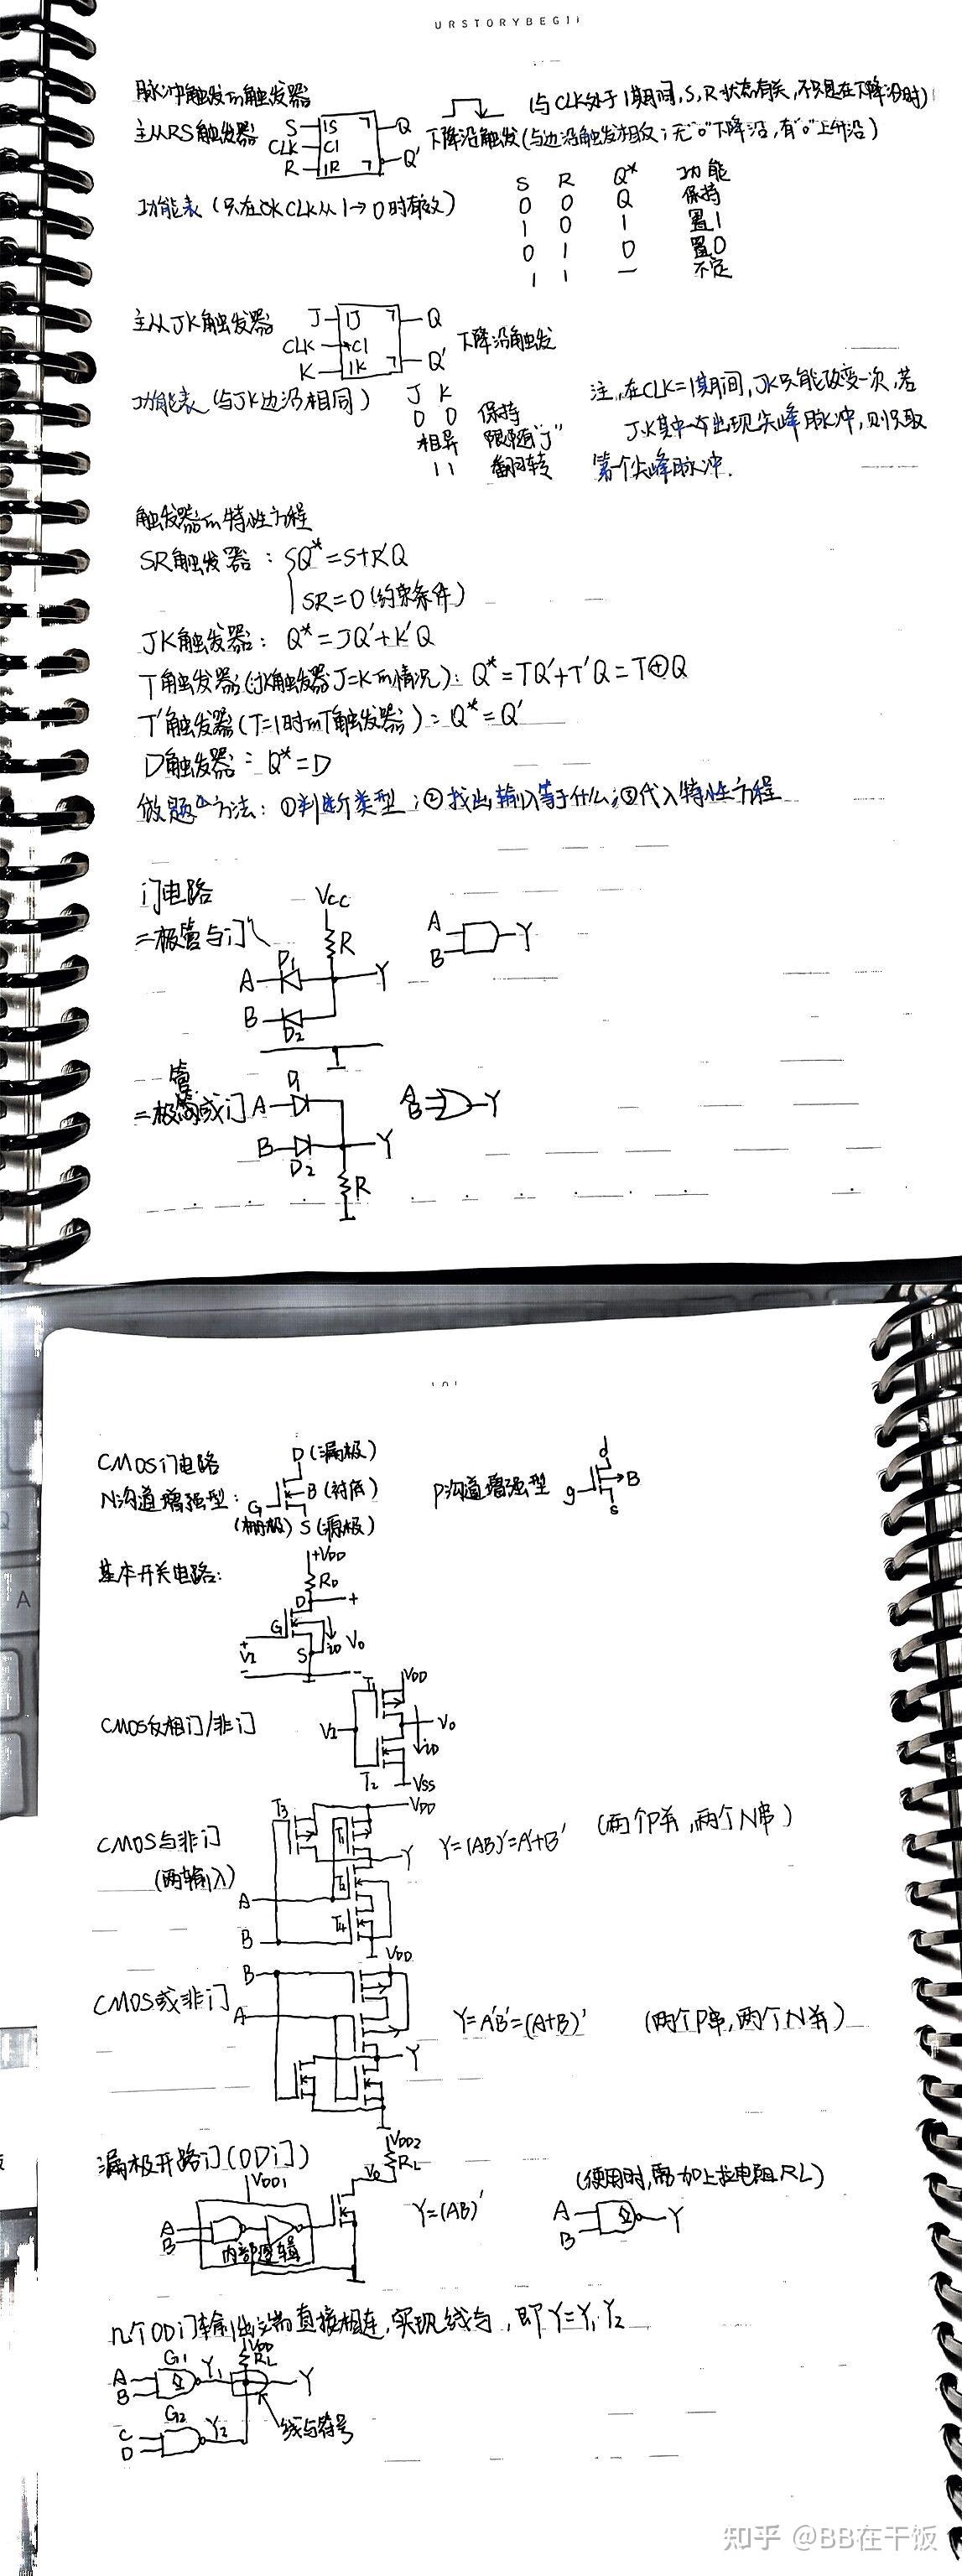 URSTORYBEGI
脉冲触发的触发器
(与CLK处于1期间,S,R状态有关,不只是在下降沿时)
主从RS触发器 S 1S ㄱ Q
CLK C1
R 1R ㄱ Q'
下降沿触发(与边沿触发相反;无"o"下降沿,有"o"上升沿)
功能表(只在CLK从1→0时有效)
S R Q* 功能
0 0 Q 保持
1 0 1 置1
0 1 0 置0
1 1 — 不定
主从JK触发器 J 1J ㄱ Q
CLK C1
K 1K ㄱ Q'
下降沿触发
功能表(与JK边沿相同)
J K
0 0 保持
相异 跟随"J"
1 1 翻转
注,在CLK=1期间,JK只能改变一次,若
J、K其中一个出现尖峰脉冲,则只取
第一个尖峰脉冲.
触发器的特性方程
SR触发器: Q*=S+R'Q
SR=0(约束条件)
JK触发器: Q*=JQ'+K'Q
T触发器(JK触发器J=K的情况): Q*=TQ'+T'Q=T⊕Q
T'触发器(T=1时的T触发器): Q*=Q'
D触发器: Q*=D
做题方法: ①判断类型;②找出输入等于什么;③代入特性方程
门电路
二极管与门
VCC
R
D1
A Y
B
D2
A
B Y
二极管或门
D1
A
B Y
D2
R
A
B Y
CMOS门电路
N沟道增强型: D(漏极)
G B(衬底)
(栅极) S(源极)
P沟道增强型 d
g B
s
基本开关电路:
+VDD
RD
D +
G
+ VI S iD VO
- -
CMOS反相门/非门
T1 VDD
VI VO
iD
T2 VSS
CMOS与非门
(两输入)
T3 VDD
T1
Y
T2
A
T4
B
Y=(AB)'=A'+B' (两个P并,两个N串)
CMOS或非门
VDD
B
A
Y
Y=A'B'=(A+B)' (两个P串,两个N并)
漏极开路门(OD门)
VDD1
VDD2
RL
VO
A
B
内部逻辑
Y=(AB)'
(使用时,需加上拉电阻RL)
A
B Y
几个OD门输出端直接相连,实现线与,即Y=Y1·Y2
VDD
RL
G1
A Y1 Y
B
G2
C Y2
D
线与符号
知乎 @BB在干饭